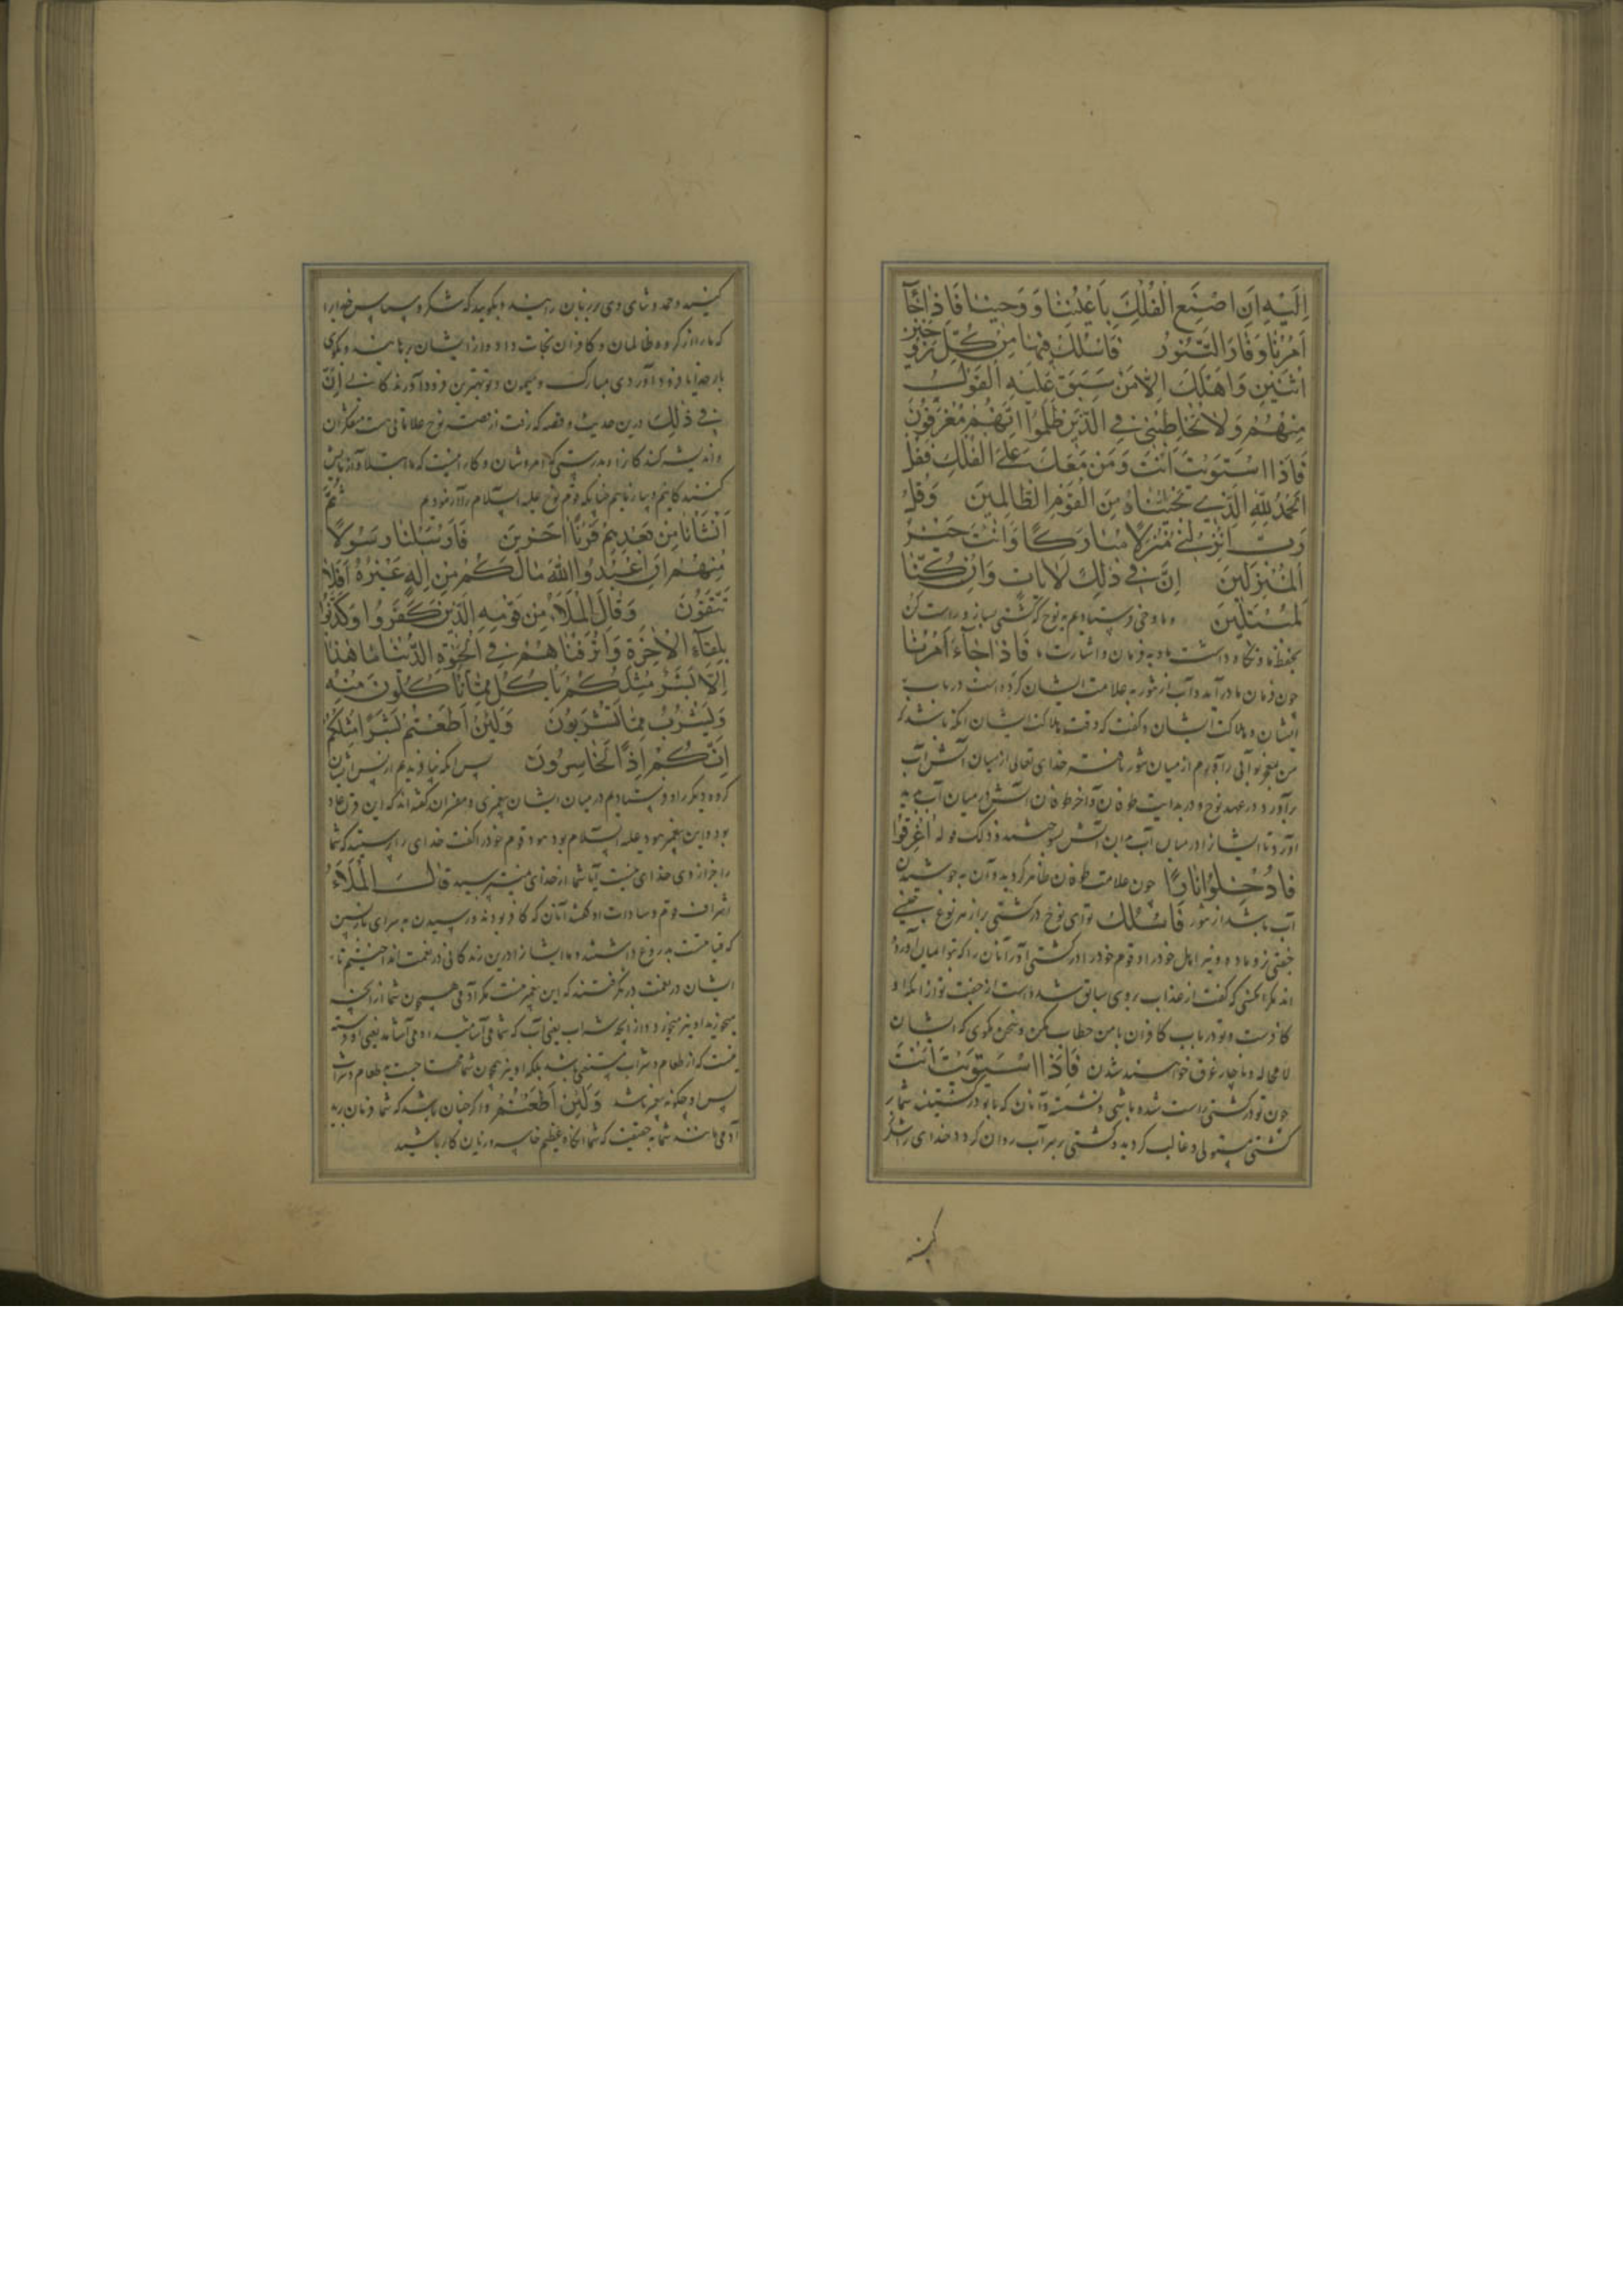 اِلَيْهِ اَنِ اصْنَعِ الْفُلْكَ بِاَعْيُنِنَا وَوَحْيِنَا فَاِذَا جَآءَ
اَمْرُنَا وَفَارَ التَّنُّورُ فَاسْلُكْ فِيهَا مِنْ كُلٍّ زَوْجَيْنِ
اثْنَيْنِ وَاَهْلَكَ اِلَّا مَنْ سَبَقَ عَلَيْهِ الْقَوْلُ
مِنْهُمْ وَلَا تُخَاطِبْنِي فِي الَّذِينَ ظَلَمُوا اِنَّهُمْ مُغْرَقُونَ
فَاِذَا اسْتَوَيْتَ اَنْتَ وَمَنْ مَعَكَ عَلَى الْفُلْكِ فَقُلِ
الْحَمْدُ لِلّٰهِ الَّذِي نَجّٰنَا مِنَ الْقَوْمِ الظَّالِمِينَ وَقُلْ
رَبِّ اَنْزِلْنِي مُنْزَلًا مُبَارَكًا وَاَنْتَ خَيْرُ
الْمُنْزِلِينَ اِنَّ فِي ذٰلِكَ لَاٰيَاتٍ وَاِنْ كُنَّا
لَمُبْتَلِينَ و ما وحی فرستادیم به نوح که کشتی بساز و راست کن
بحفظ ما و نگاه داشت ما و به فرمان و اشارت ما فَاِذَا جَآءَ اَمْرُنَا
چون فرمان ما درآید و آب از تنور به علامت ایشان کرده است در باب
ایشان و هلاکت ایشان و گفت که وقت هلاکت ایشان آنگه باشد که
من بمعجز تو آبی را آورم از میان تنور تافته خدای تعالی از میان آتش آب
برآورد در عهد نوح و در بدایت طوفان و آخر طوفان آتش از میان آب پدید
آورد تا ایشانرا در میان آب به آن آتش بسوختند و ذلک قوله اُغْرِقُوا
فَاُدْخِلُوا نَارًا چون علامت طوفان ظاهر گردید و آن به جوشیدن
آب باشد از تنور فَاسْلُكْ تو ای نوح در کشتی بر از هر نوع جنسی
جفتی نر و ماده و نیز اهل خود را و قوم خود را در کشتی آور آنان را که بتو ایمان آورده
اند مگر آنکسی که گفت از عذاب بر وی سابق شده است از جفت تو از آنکه او
کافرست و تو در باب کافران با من خطاب مکن و سخن مگوی که ایشان
لا محاله و ناچار غرق خواهند شدن فَاِذَا اسْتَوَيْتَ اَنْتَ
چون تو در کشتی راست شده باشی و نشسته و آنان که با تو در کشتیند شما بر
کشتی مستولی و غالب گردید و کشتی بر سر آب روان گردد خدای را شکر
کنید
کنید و حمد و ثنای وی بر زبان رانید و بگویید که شکر و سپاس خدایرا
که ما را از گروه ظالمان و کافران نجات داد و از ایشان برهانید و بگوی
بار خدایا فرود آور فرود آوردی مبارک و میمون و تو بهترین فرود آورندگانی اِنَّ
فِي ذٰلِكَ درین حدیث و قصه که رفت از قصه نوح علاماتی هست متفکران
و اندیشه کنندگان را و بدرستی که امر و شان و کار اینست که ما ابتلا و آزمایش
کنندگانیم چنانکه قوم نوح علیه السلام را آزمودیم ثُمَّ
اَنْشَأْنَا مِنْ بَعْدِهِمْ قَرْنًا اٰخَرِينَ فَاَرْسَلْنَا رَسُولًا
مِنْهُمْ اَنِ اعْبُدُوا اللّٰهَ مَا لَكُمْ مِنْ اِلٰهٍ غَيْرُهُ اَفَلَا
تَتَّقُونَ وَقَالَ الْمَلَاُ مِنْ قَوْمِهِ الَّذِينَ كَفَرُوا وَكَذَّبُوا
بِلِقَآءِ الْاٰخِرَةِ وَاَتْرَفْنَاهُمْ فِي الْحَيٰوةِ الدُّنْيَا مَا هٰذَا
اِلَّا بَشَرٌ مِثْلُكُمْ يَأْكُلُ مِمَّا تَأْكُلُونَ مِنْهُ
وَيَشْرَبُ مِمَّا تَشْرَبُونَ وَلَئِنْ اَطَعْتُمْ بَشَرًا مِثْلَكُمْ
اِنَّكُمْ اِذًا لَخَاسِرُونَ پس آنگه بیافریدیم از پس ایشان
گروه دیگر را و فرستادیم در میان ایشان پیغمبری و مفسران گفته اند که این قرن عاد
بود و این پیغمبر هود علیه السلام بود هود قوم خود را گفت خدای را پرستید که شما
را جز از وی خدای نیست آیا شما از خدای نمیترسید قَالَ الْمَلَاُ
اشراف قوم و سادات او گفتند آنان که کافر بودند و رسیدن به سرای بازپسین
که قیامتست بدروغ داشتند و ما ایشانرا درین زندگانی در نعمت انداختیم تا
ایشان در نعمت در گرفتند که این پیغمبر نیست مگر آدمی همچون شما از آنچه
میخورید او نیز میخورد و از آنچه شراب یعنی آب که شما می آشامید او می آشامد یعنی او فرشته
نیست که از طعام و شراب مستغنی باشد بلکه او نیز همچون شما محتاجست به طعام و شراب
پس او چگونه پیغمبر باشد وَلَئِنْ اَطَعْتُمْ و اگر چنان باشد که شما فرمان برید
آدمی مانند شما به حقیقت که شما آنگاه عظیم خاسر و زیان کار باشید